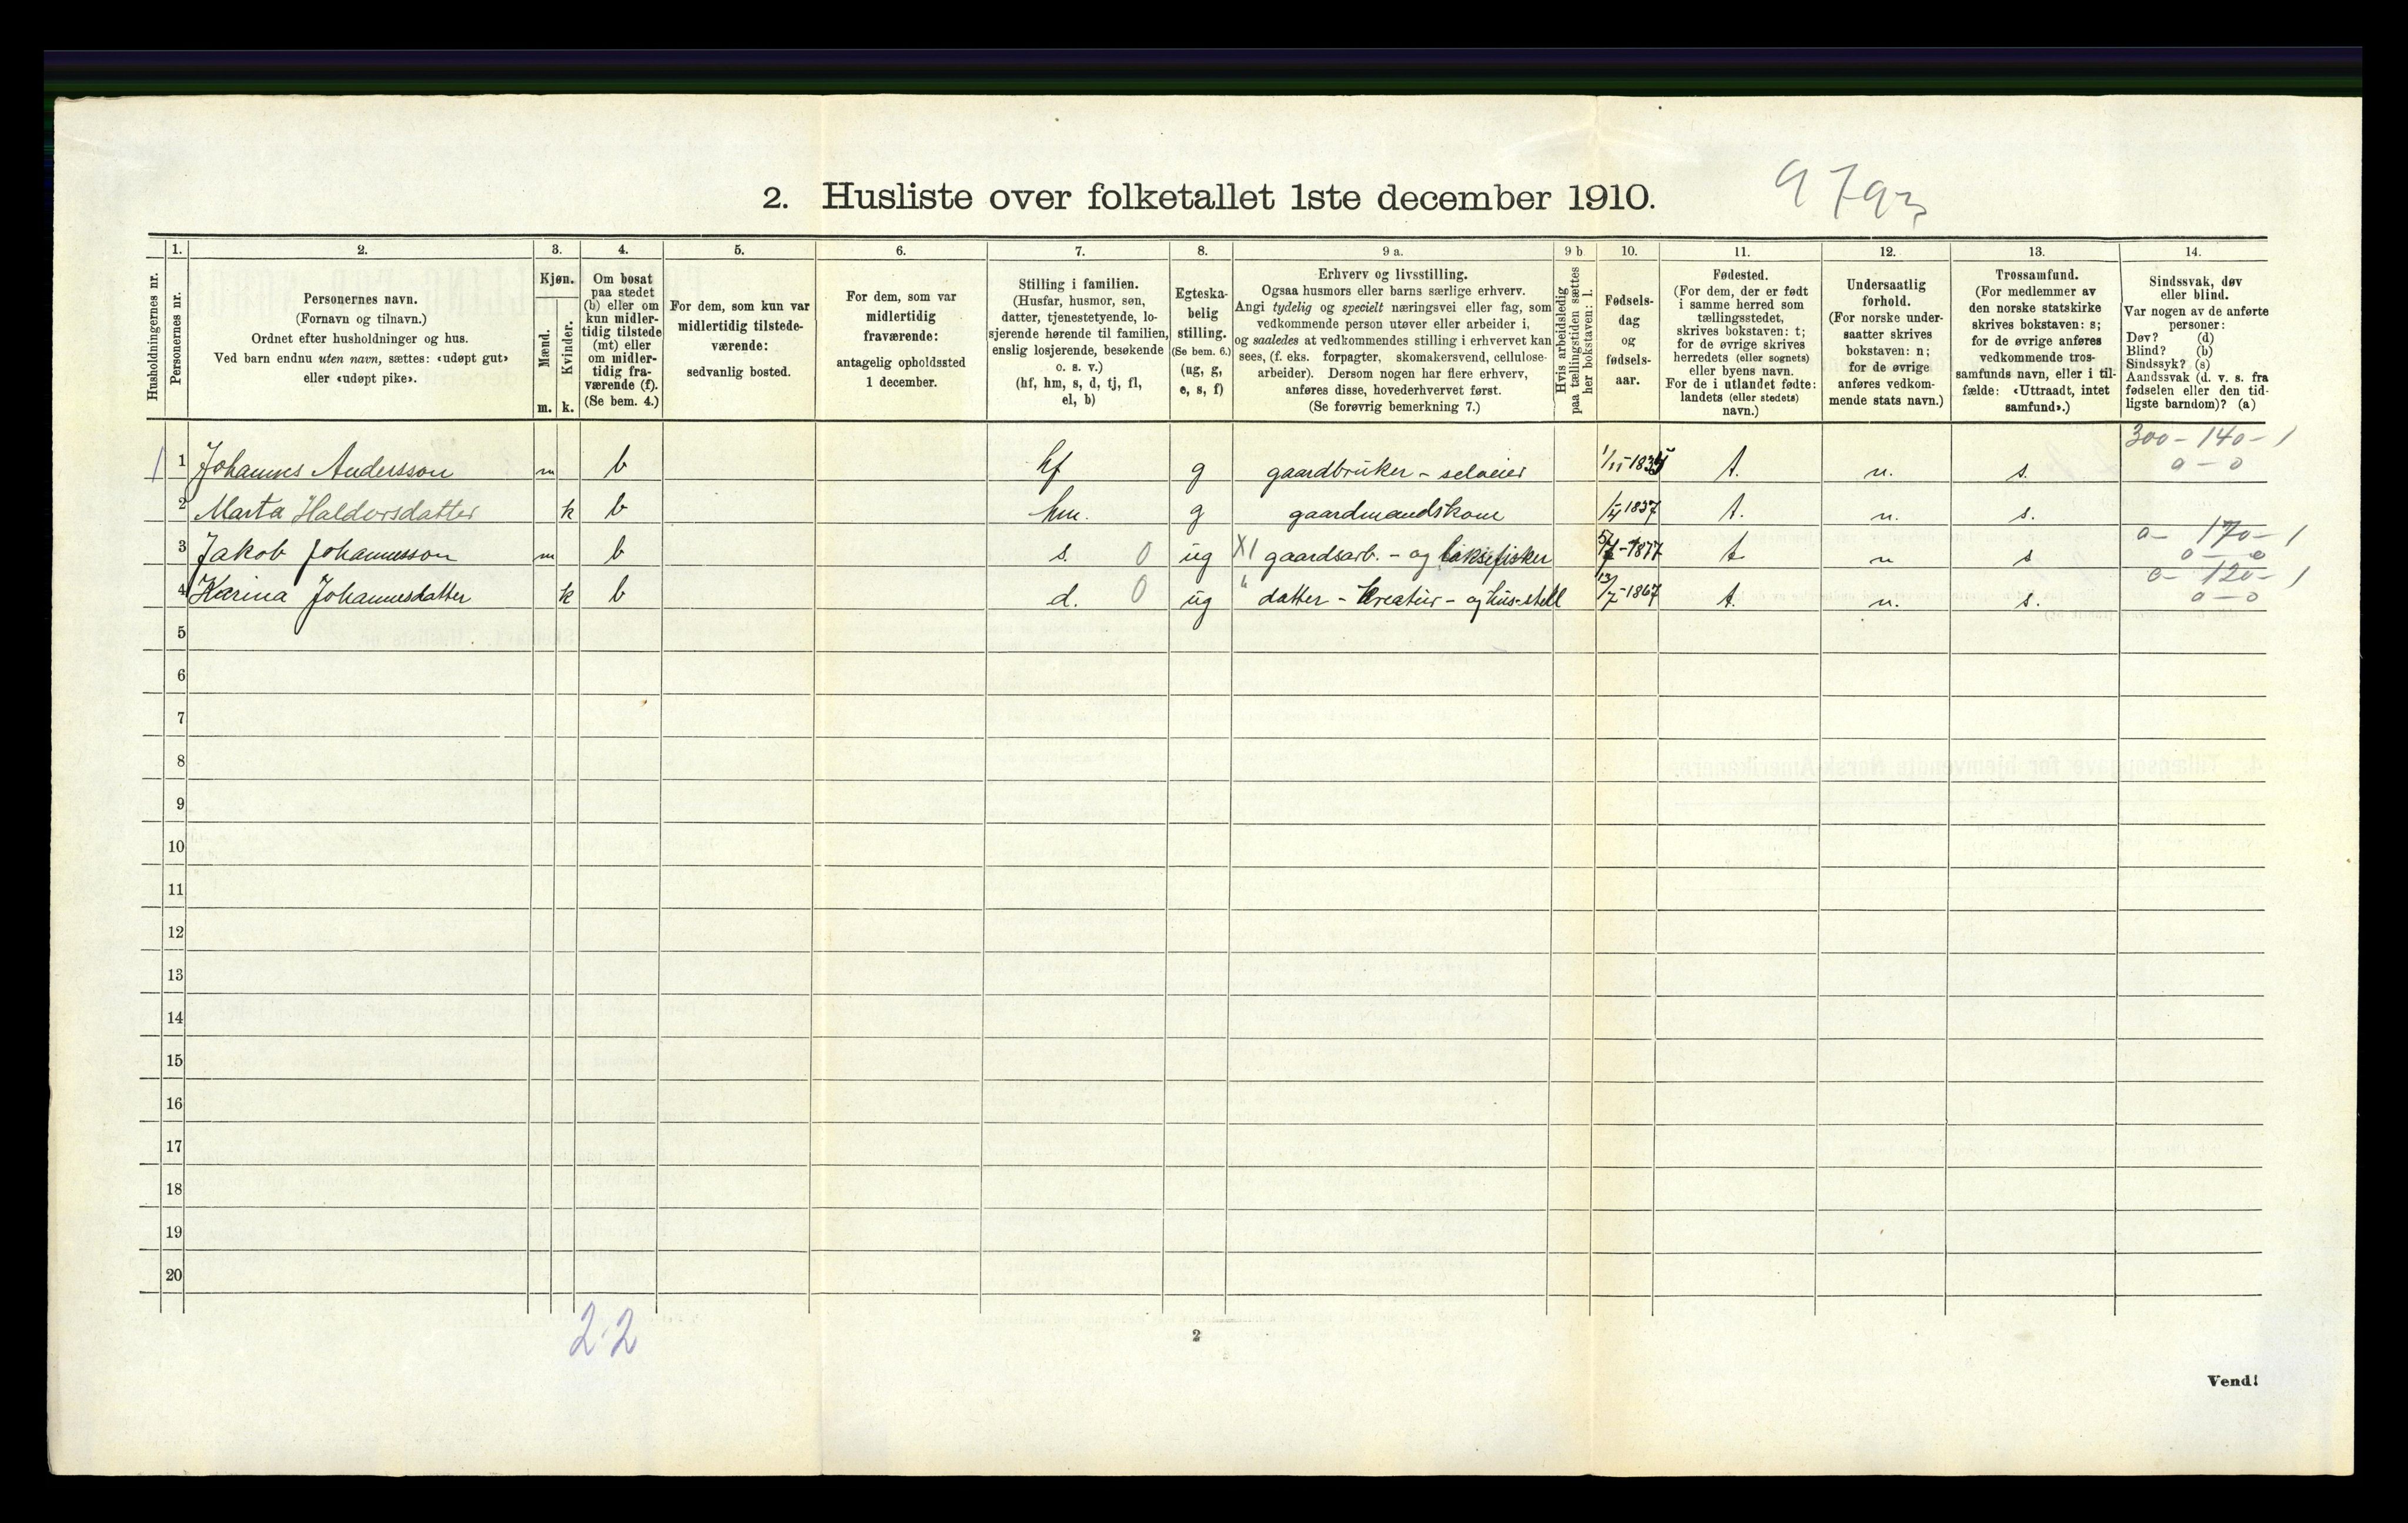 2. Husliste over folketallet 1ste december 1910.
1. 2. 3. 4. 5. 6. 7. 8. 9 a. 9 b 10. 11. 12. 13. 14.
Husholdningernes nr.
Personernes nr.
Personernes navn.
(Fornavn og tilnavn.)
Ordnet efter husholdninger og hus.
Ved barn endnu uten navn, sættes: «udøpt gut»
eller «udøpt pike».
Kjøn.
Mænd.
Kvinder.
m. k.
Om bosat
paa stedet
(b) eller om
kun midler-
tidig tilstede
(mt) eller
om midler-
tidig fra-
værende (f).
(Se bem. 4.)
For dem, som kun var
midlertidig tilstede-
værende:
sedvanlig bosted.
For dem, som var
midlertidig
fraværende:
antagelig opholdssted
1 december.
Stilling i familien.
(Husfar, husmor, søn,
datter, tjenestetyende, lo-
sjerende hørende til familien,
enslig losjerende, besøkende
o. s. v.)
(hf, hm, s, d, tj, fl,
el, b)
Egteska-
belig
stilling.
(Se bem. 6.)
(ug, g,
e, s, f)
Erhverv og livsstilling.
Ogsaa husmors eller barns særlige erhverv.
Angi tydelig og specielt næringsvei eller fag, som
vedkommende person utøver eller arbeider i,
og saaledes at vedkommendes stilling i erhvervet kan
sees, (f. eks. forpagter, skomakersvend, cellulose-
arbeider). Dersom nogen har flere erhverv,
anføres disse, hovederhvervet først.
(Se forøvrig bemerkning 7.)
Hvis arbeidsledig
paa tællingstiden sættes
her bokstaven: l.
Fødsels-
dag
og
fødsels-
aar.
Fødested.
(For dem, der er født
i samme herred som
tællingsstedet,
skrives bokstaven: t;
for de øvrige skrives
herredets (eller sognets)
eller byens navn.
For de i utlandet fødte:
landets (eller stedets)
navn.)
Undersaatlig
forhold.
(For norske under-
saatter skrives
bokstaven: n;
for de øvrige
anføres vedkom-
mende stats navn.)
Trossamfund.
(For medlemmer av
den norske statskirke
skrives bokstaven: s;
for de øvrige anføres
vedkommende tros-
samfunds navn, eller i til-
fælde: «Uttraadt, intet
samfund».)
Sindssvak, døv
eller blind.
Var nogen av de anførte
personer:
Døv? (d)
Blind? (b)
Sindssyk? (s)
Aandssvak (d. v. s. fra
fødselen eller den tid-
ligste barndom)? (a)
300 - 140 - 1
1 1 Johannes Andersson m b hf g gaardbruker - selveier t. n. s. 0 - 0
2 Marta Haldorsdatter k b hm. g gaardmandskone 1/4 1837 t. n. s.
0 - 170 - 1
3 Jakob Johannesson m b s. 0 ug X1 gaardsarb. - og laksefisker t n s 0 - 0
0 - 120 - 1
4 Karina Johannesdatter k b d. 0 ug " datter - kreatur - og hus-stell 13/7 - 1867 t. n. s. 0 - 0
5
6
7
8
9
10
11
12
13
14
15
16
17
18
19
20
2 2
2
Vend!